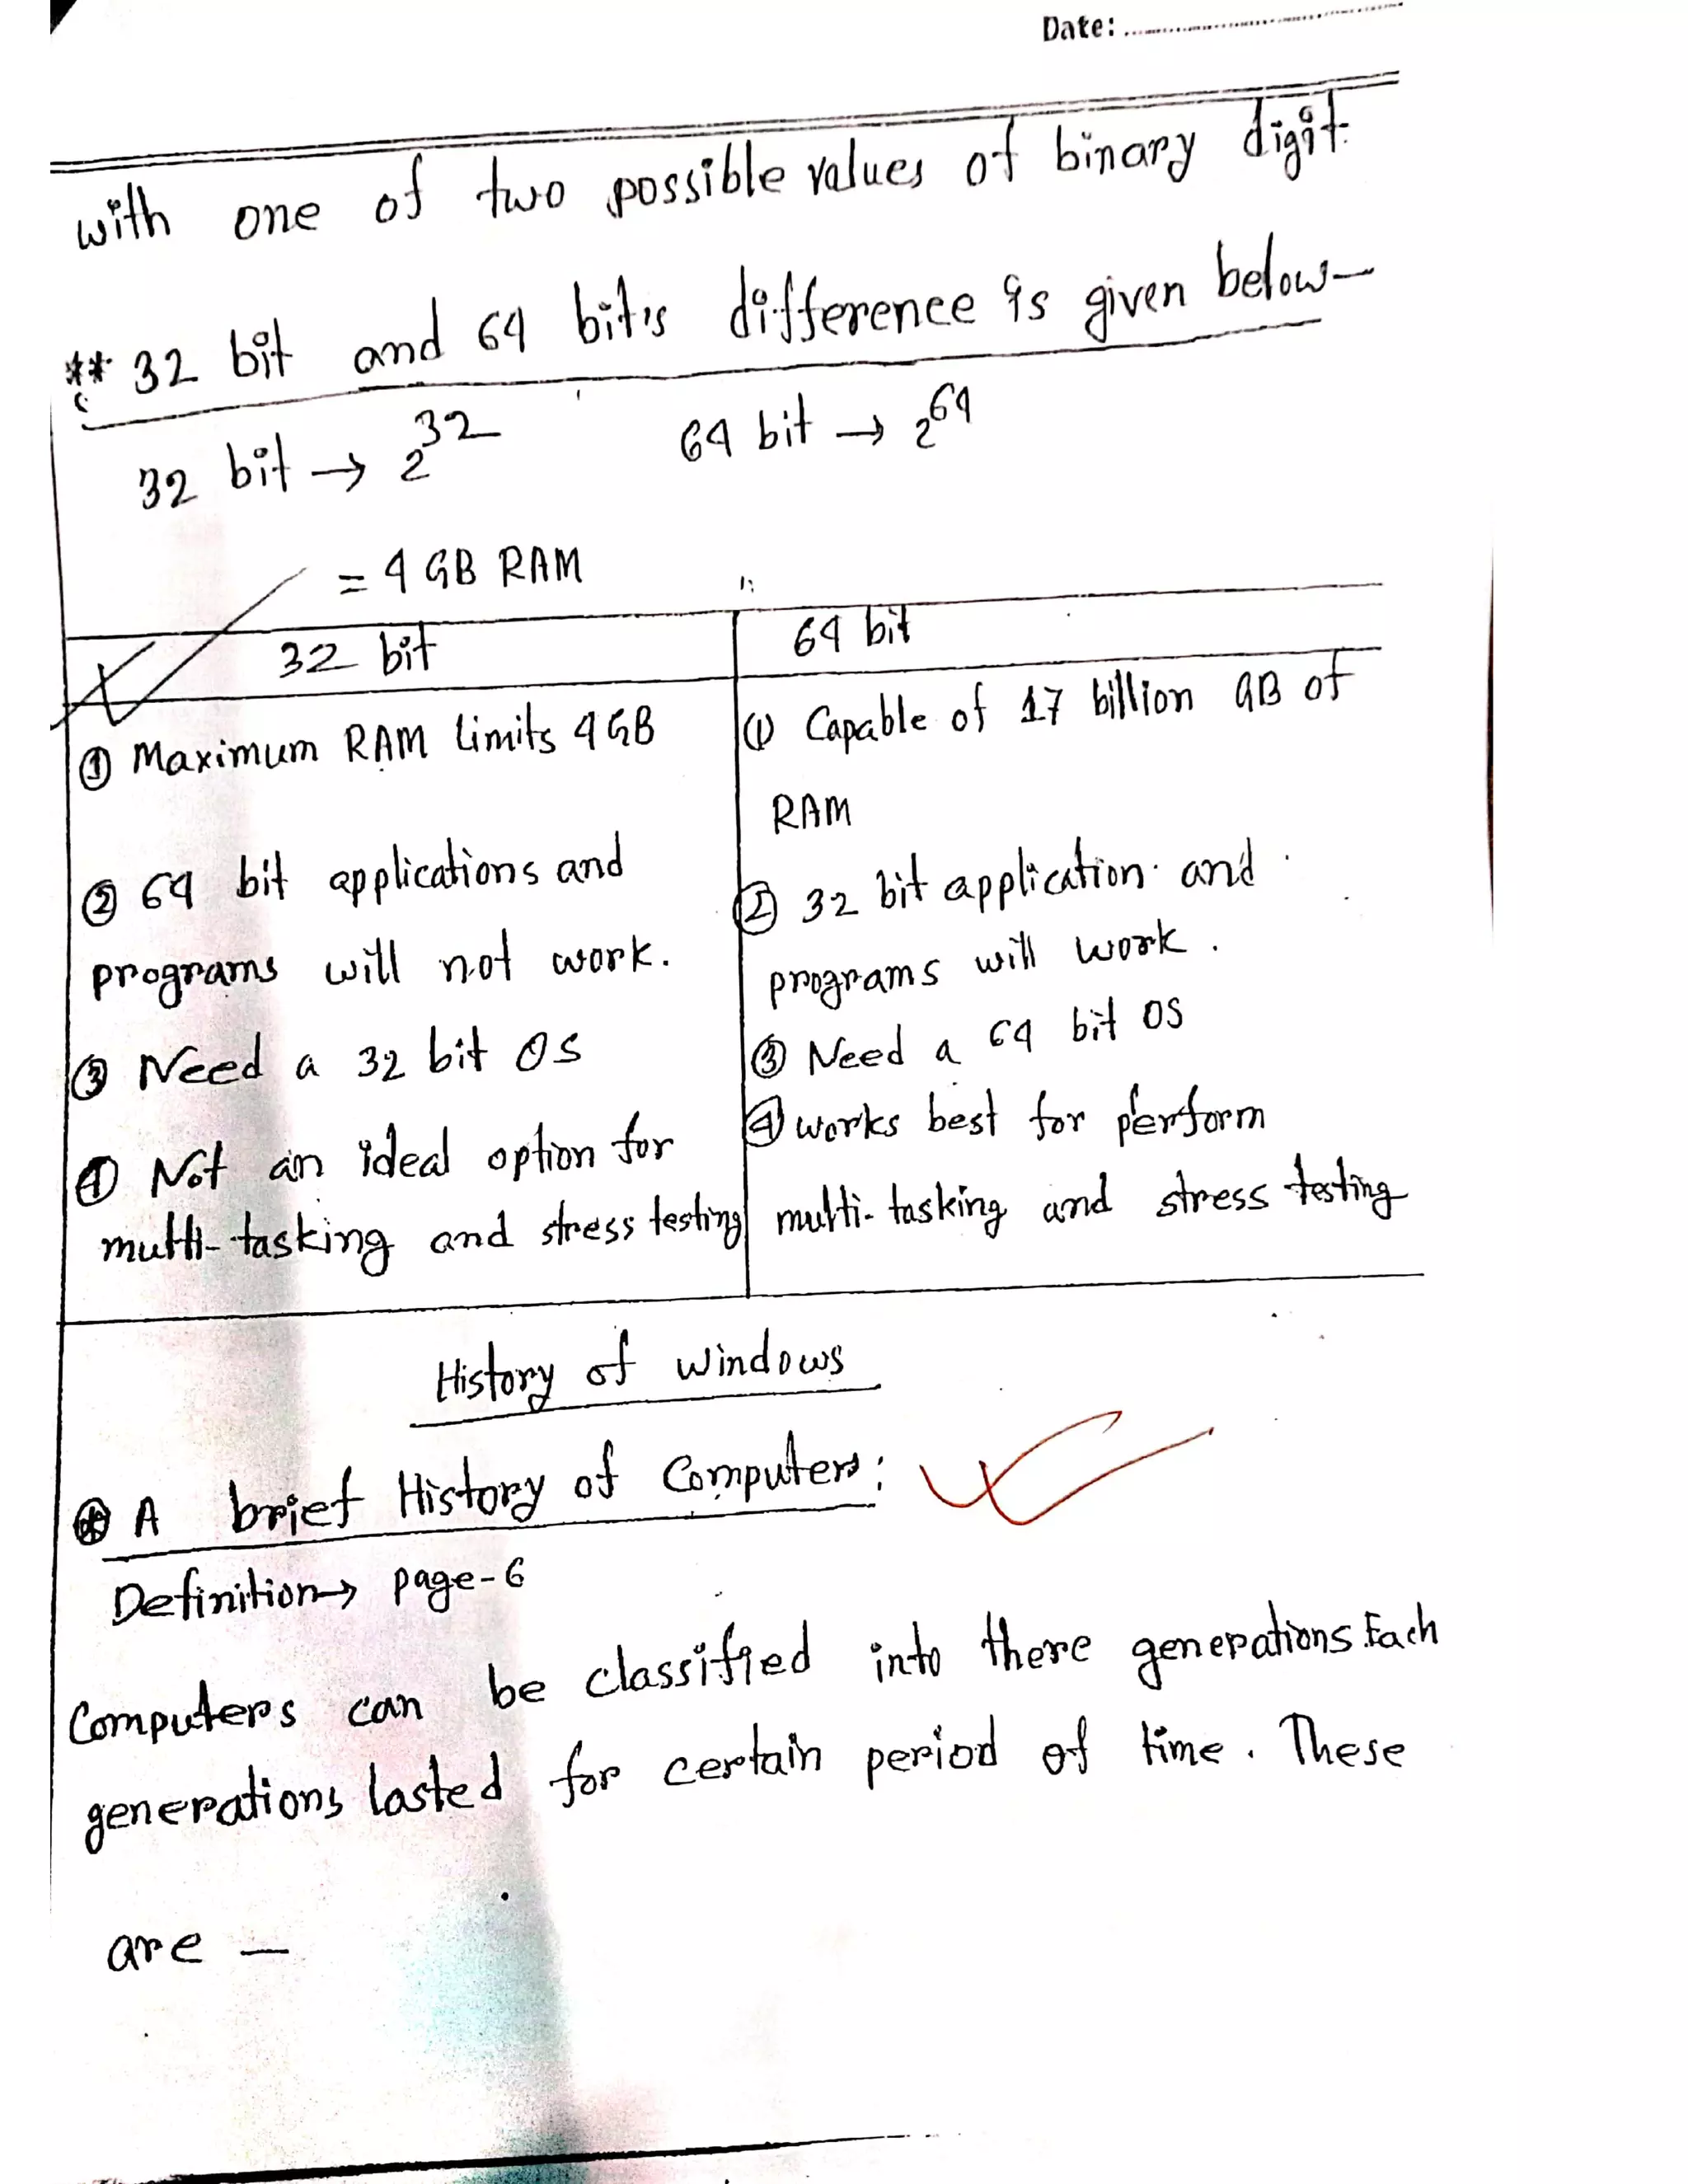 Date:
with one of two possible values of binary digit.
** 32 bit and 64 bit's difference is given below—
32 bit → 2^32 64 bit → 2^64
= 4 GB RAM
32 bit 64 bit
① Maximum RAM Limits 4GB
② 64 bit applications and
programs will not work.
③ Need a 32 bit OS
④ Not an ideal option for
multi-tasking and stress testing
① Capable of 17 billion GB of
RAM
② 32 bit application and
programs will work.
③ Need a 64 bit OS
④ works best for perform
multi-tasking and stress testing
History of windows
⊛ A brief History of Computers:
Definition→ page-6
Computers can be classified into there generations. Each
generations lasted for certain period of time. These
are —